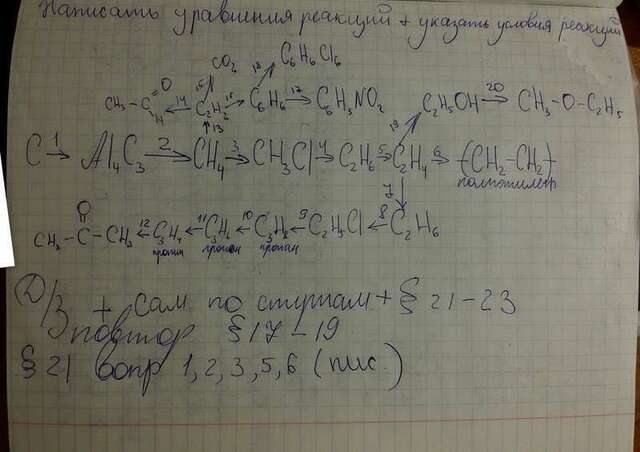 Написать уравнения реакций + указать условия реакций
CO₂ C₆H₆Cl₆
CH₃ – C =O H ←14 C₂H₂ 15 →16 C₆H₆ 18 →17 C₆H₅NO₂ C₂H₅OH →20 CH₃ – O – C₂H₅
↑13 19
C →1 Al₄C₃ →2 CH₄ →3 CH₃Cl →4 C₂H₆ →5 C₂H₄ →6 (CH₂ – CH₂)
полиэтилен
7 ↓
CH₃ – C – CH₃ O ←12 C₃H₄ ←11 C₃H₆ ←10 C₃H₈ ←9 C₂H₅Cl ←8 C₂H₆
пропин пропен пропан
Д/З + сам по ступам + § 21 – 23
повтор § 17 – 19
§ 21 вопр 1, 2, 3, 5, 6 (пис.)